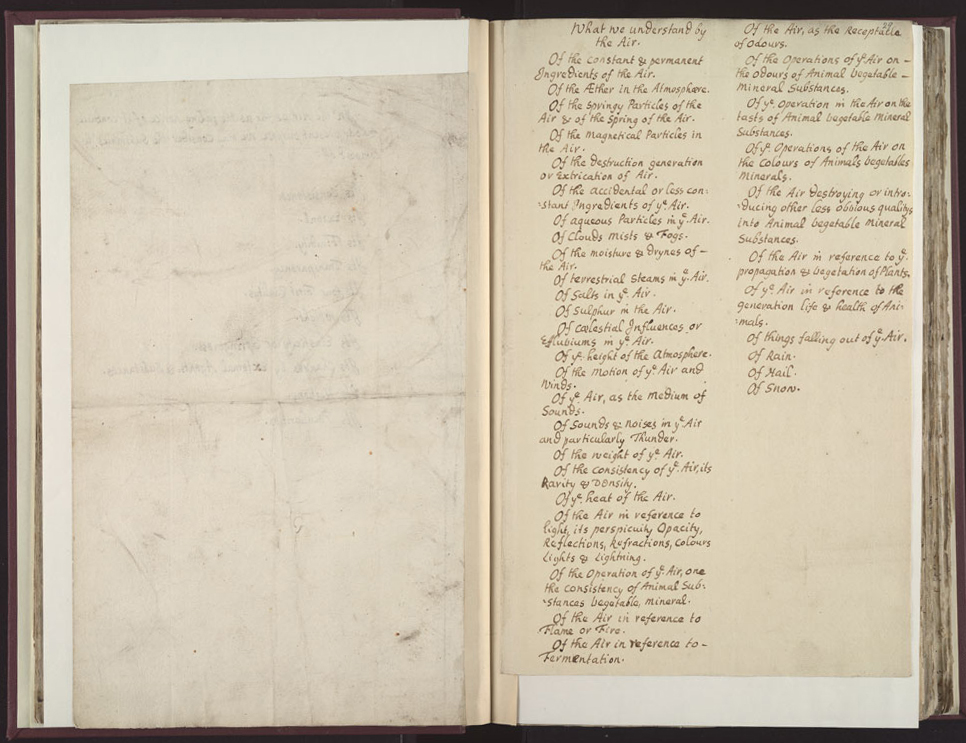 What we understand by
the Air.
Of the constant & permanent
Ingredients of the Air.
Of the Æther in the Atmosphære.
Of the springy Particles of the
Air & of the Spring of the Air.
Of the magnetical Particles in
the Air.
Of the destruction generation
or Extrication of Air.
Of the accidental or less con:
:stant Ingredients of yͤ Air.
Of aqueous Particles in yͤ Air.
Of Clouds mists & Fogs.
Of the moisture & drynes of –
the Air.
Of terrestrial Steams in yͤ Air.
Of Salts in yͤ Air.
Of Sulphur in the Air.
Of Cœlestial Influences or
Effluviums in yͤ Air.
Of yͤ height of the Atmosphere.
Of the motion of yͤ Air and
Winds.
Of yͤ Air, as the Medium of
Sounds.
Of Sounds & noises in yͤ Air
and particularly Thunder.
Of the weight of yͤ Air.
Of the consistency of yͤ Air, its
Rarity & Density.
Of yͤ heat of the Air.
Of the Air in reference to
light, its perspicuity Opacity,
Reflections, Refractions, Colours
Lights & Lightning.
Of the Operation of yͤ Air, one
the consistency of Animal Sub:
:stances vegetable, mineral.
Of the Air in reference to
Flame or Fire.
Of the Air in reference to –
Fermentation.
29
Of the Air, as the Receptacle
of Odours.
Of the Operations of yͤ Air on –
the Odours of Animal vegetable –
Mineral Substances.
Of yͤ Operation in the Air on the
tasts of Animal vegetable mineral
Substances.
Of yͤ Operations of the Air on
the Colours of Animals vegetables
Minerals.
Of the Air destroying or intro:
:ducing other less obvious qualitys
into Animal vegetable mineral
Substances.
Of the Air in reference to yͤ
propagation & vegetation of Plants.
Of yͤ Air in reference to the
generation life & health of Ani:
:mals.
Of things falling out of yͤ Air.
Of Rain.
Of Hail.
Of Snow.